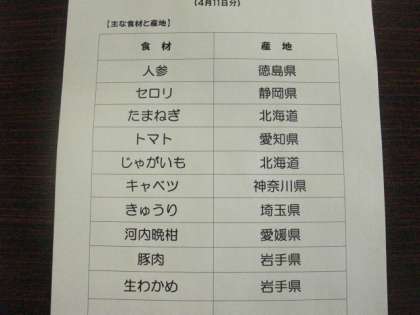 (4月11日分)
【主な食材と産地】
食 材 産 地
人参 徳島県
セロリ 静岡県
たまねぎ 北海道
トマト 愛知県
じゃがいも 北海道
キャベツ 神奈川県
きゅうり 埼玉県
河内晩柑 愛媛県
豚肉 岩手県
生わかめ 岩手県